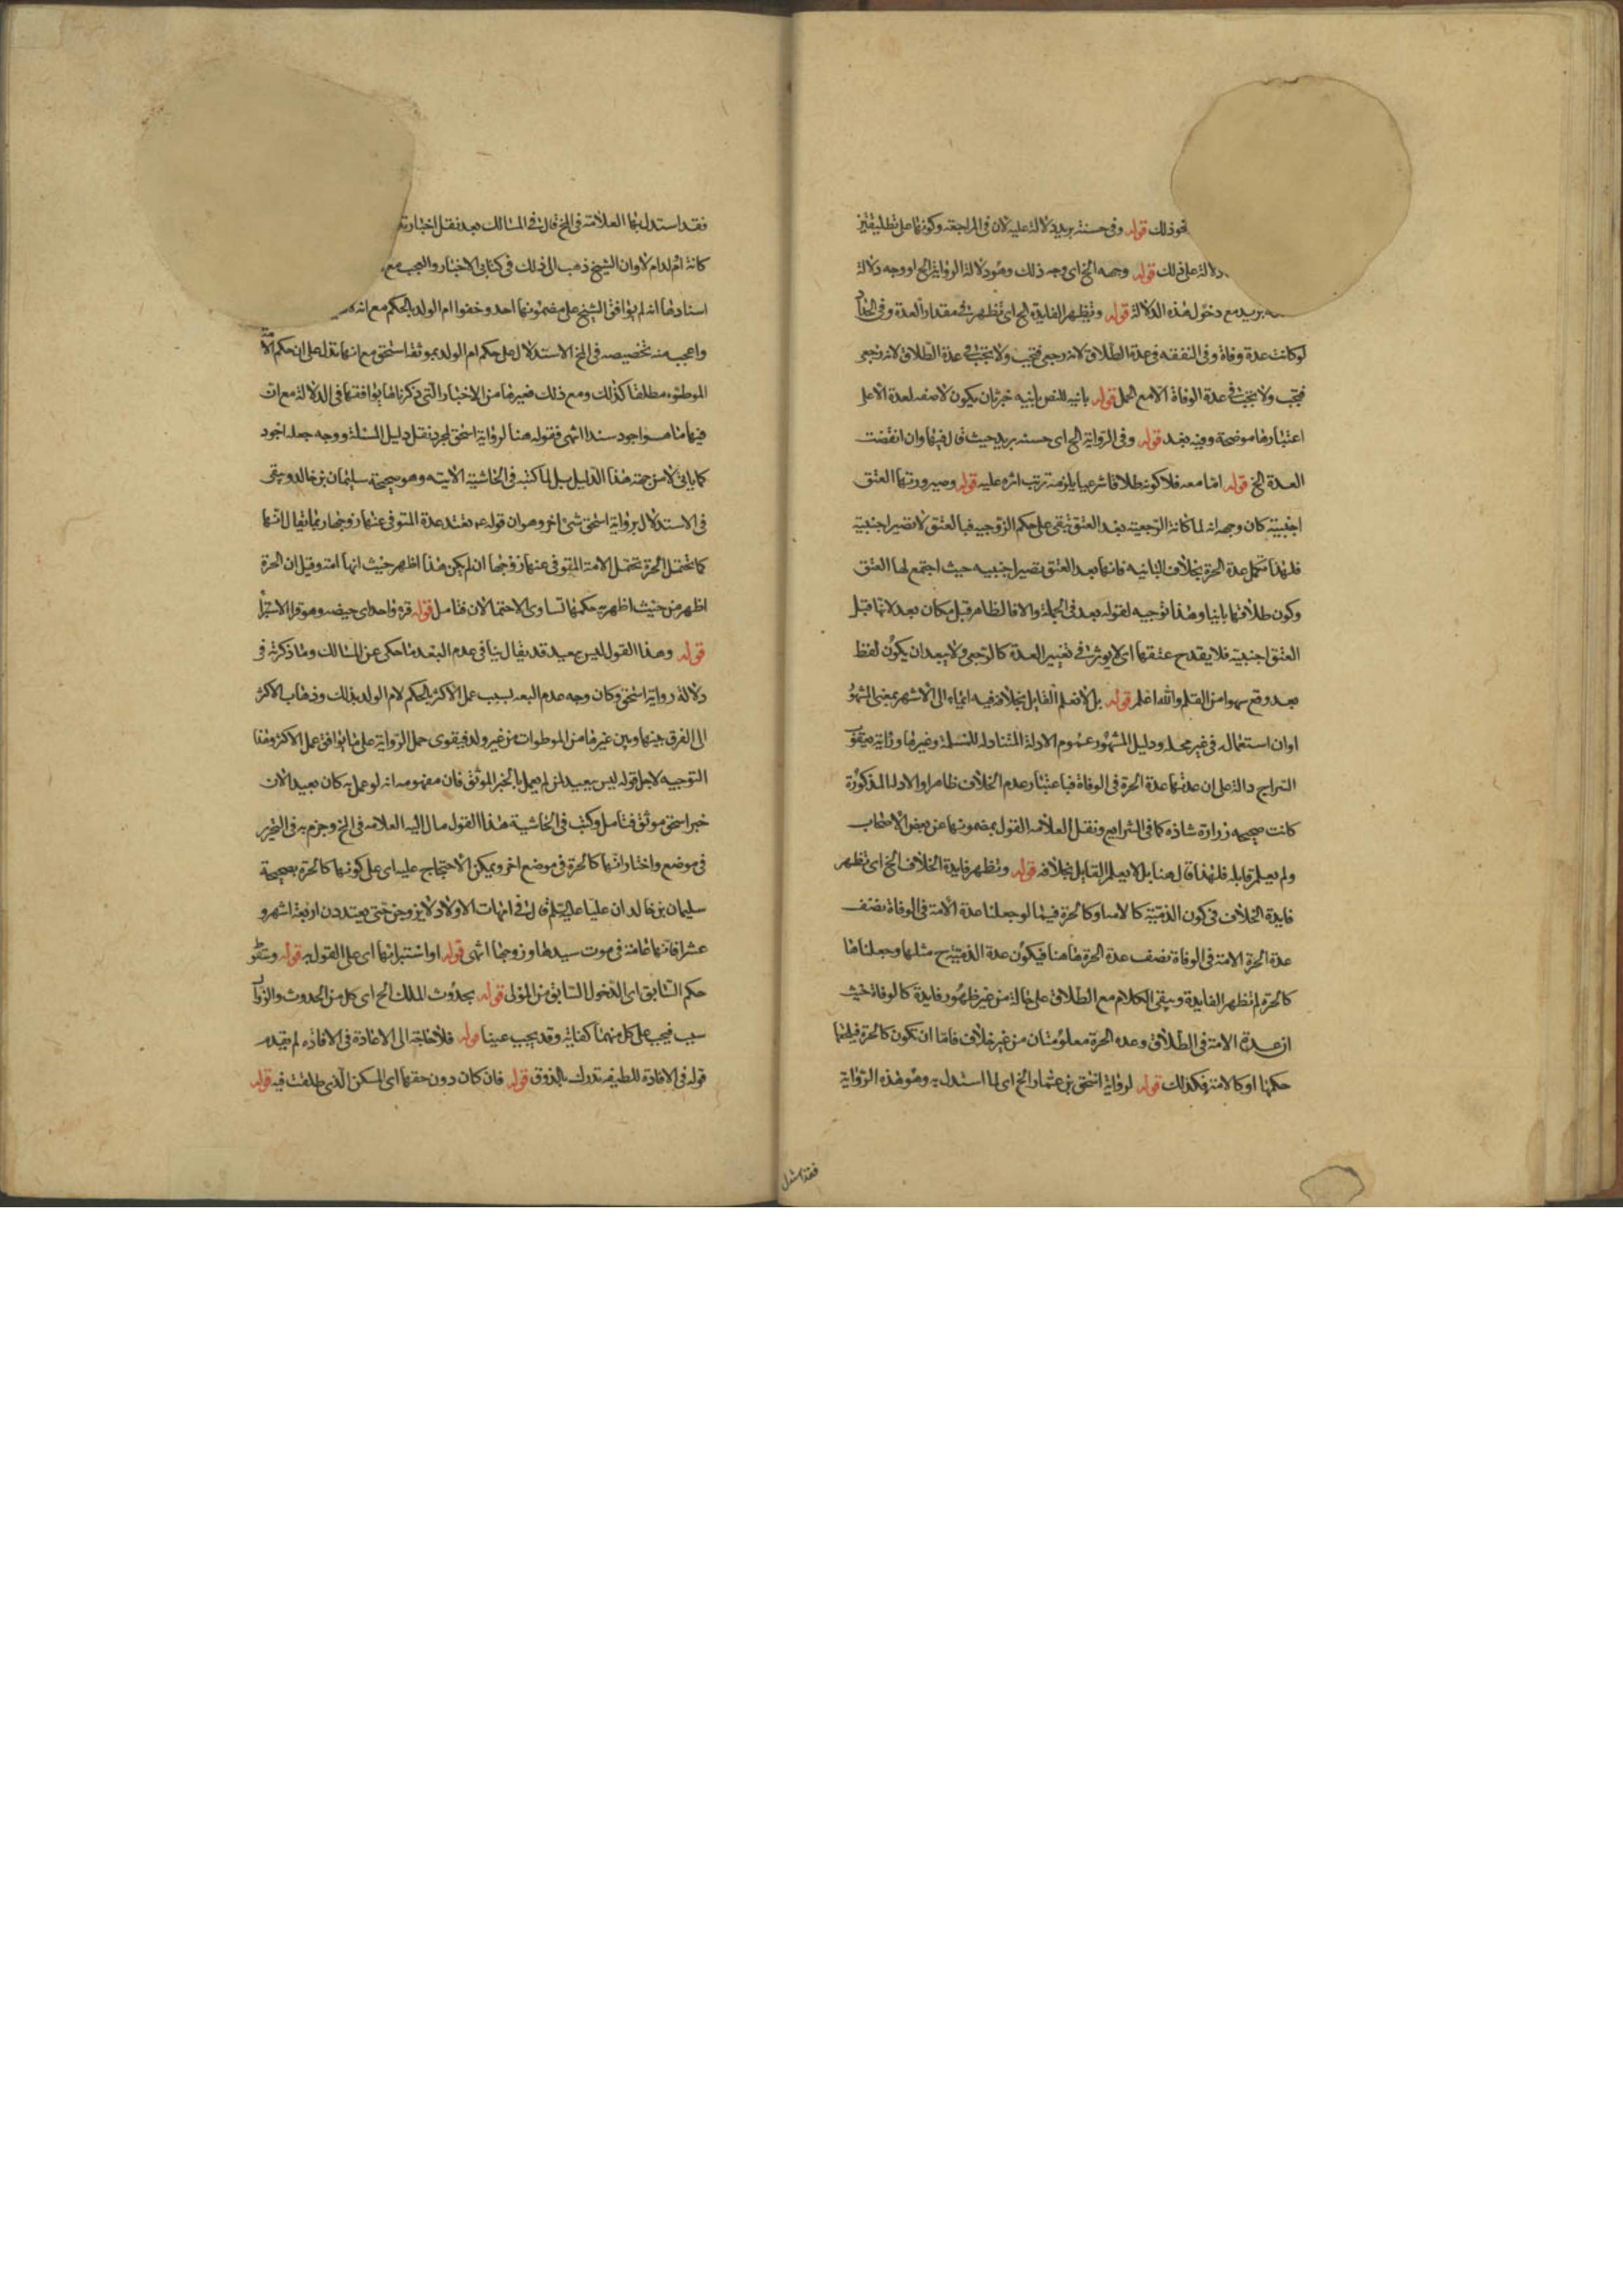 نحو ذلك قوله وفى حسنة بريد دلالة عليه لان فى المراجعة وكونها على تطليقتين
دلالة على ذلك قوله وجهه الخ اى وجه ذلك وهو دلالة الرواية الخ او وجه دلالة
بريد مع دخول هذه الدلالة قوله وتظهر الفايدة الخ اى تظهر فى مقدار العدة وفى
لو كانت عدة وفاة وفى النفقه فى عدة الطلاق لانه رجعى فتجب ولا تجب فى عدة الطلاق لانه رجعى
فتجب ولا تجب فى عدة الوفاة الا مع الحمل قوله باينه للنص باينه خبر ثان يكون لا صفه لعدة الا على
اعتبارها موضحة وفيه بعد قوله وفى الرواية الخ اى حسنه بريد حيث قال فيها وان انقضت
العدة الخ قوله امّا معه فلا كونه طلاقا شرعيا يلزمه ترتب اثره عليه قوله وصيرورتها العتق
اجنبية كان وجهه انه لما كانة الرجعية بعد العتق تبقى على حكم الزوجيه فبالعتق لا تصير اجنبية
فلهذا تكمل عدة الحرة بخلاف البانيه فانها بعد العتق تصير اجنبيه حيث اجتمع لها العتق
وكون طلاقها باينا وهذا توجيه لقوله بعد فى الجملة والا فالظاهر قبل مكان بعد لانها قبل
العتق اجنبية فلا يقدح عتقها اى لا يوثر فى تغيير العدة كالرجعى ولا يبعد ان يكون لفظ
بعد وقع سهوا من القلم والله اعلم قوله بل لا نعلم القايل بخلافه فيه ايماء الى الاشهر بمعنى المشهور
او ان استعماله فى غير محله ودليل المشهور عموم الادلة المتناوله للمسئلة وغيرها ورواية يعقوب
السراج دالة على ان عدتها عدة الحرة فى الوفاة فباعتبار عدم الخلاف ظاهرا والادلة المذكورة
كانت صحيحه زرارة شاذه كما فى الشرايع ونقل العلامه القول بمضمونها عن بعض الاصحاب
ولم يعلم قايله فلهذا قال هنا بل لا يعلم القايل بخلافه قوله وتظهر فايدة الخلاف الخ اى تظهر
فايدة الخلاف فى كون الذمّية كالامه او كالحرة فيما لو جعلنا عدة الامة فى الوفاة نصف
عدة الحرة الامة فى الوفاة نصف عدة الحرة هاهنا فيكون عدة الذمية ح مثلها وجعلناها
كالحرة لم تظهر الفايدة ويبقى الكلام مع الطلاق على حاله من غير ظهور فايدة كالوفاة حيث
ان عدة الامة فى الطلاق وعده الحرة معلومتان من غير خلاف فاما ان تكون كالحرة فيلحقها
حكمها او كالامة فكذلك قوله لرواية اسحق بن عمار الخ اى لما استدل به وهو هذه الرواية
فقد استدل
فقد استدل بها العلامة فى المخ قال فى المسالك بعد نقل اختياره
كانة ام لدام لا وان الشيخ ذهب الى ذلك فى كتابى الاخبار والعجب مع
اسنادها انه لم يوافق الشيخ على مضمونها احد وخصوا ام الولد بالحكم مع انه
واعجب منه تخصيصه فى المخ الاستدلال على حكم ام الولد بموثقة اسحق مع انها تدل على ان حكم الامة
الموطؤه مطلقا كذلك ومع ذلك فغيرها من الاخبار التى ذكرناها يوافقها فى الدلالة مع ان
فيها ما هو اجود سندا انتهى فقوله هنا لرواية اسحق لمجرد نقل دليل المسئلة ووجه جعله اجود
كما ياتى لا من جهة هذا الدليل بل لما كتبه فى الحاشية الاتيه وهو صحيحة سليمان بن خالد وبقى
فى الاستدلال برواية اسحق شئ اخر وهو ان قوله ع تعتد عدة المتوفى عنها زوجها ربما يقال انها
كما تحتمل الحرة تحتمل الامة المتوفى عنها زوجها ان لم يكن هذا اظهر حيث انها امة وقيل ان الحرة
اظهر من حيث اظهرية حكمها تساوى الاحتمالان فتامل قوله قرء واحد اى حيضه وهو قرا الاستبرا
قوله وهذا القول ليس ببعيد قد يقال ينافى عدم البعد ما حكى عن المسالك وما ذكرته فى
دلالة رواية اسحق وكان وجه عدم البعد بسبب عمل الاكثر بالحكم لام الولد بذلك وذهاب الاكثر
الى الفرق بينها وبين غيرها من الموطوات من غير ولد فيقوى حمل الرواية على ما يوافق عمل الاكثر وهذا
التوجيه لاجل قوله ليس ببعيد لمن لم يعمل بالخبر الموثق فان مفهومه انه لو عمل به كان بعيدا لان
خبر اسحق موثق فتامل وكتب فى الحاشية هذا القول مال اليه العلامه فى المخ وجزم به فى التحرير
فى موضع واختار انها كالحرة فى موضع اخر ويمكن الاحتجاج عليه اى على كونها كالحرة بصحيحة
سليمان بن خالد ان عليا عليه السلم قال فى امهات الاولاد لا يزوجن حتى يعتددن اربعة اشهر و
عشرا فانها عامة فى موت سيدها وزوجها انتهى قوله او استبرائها اى على القول به قوله وسقوط
حكم السابق اى الدخول السابق من المولى قوله بحدوث الملك الخ اى كل من الحدوث والزوال
سبب فيجب على كل منهما كفاية وقد يجب عينا قوله فلا حاجة الى الاعادة فى الافاده لم يقيد
قوله فى الافادة للطيفه تدرك بالذوق قوله فان كان دون حقها اى المسكن الذى طلقت فيه قوله